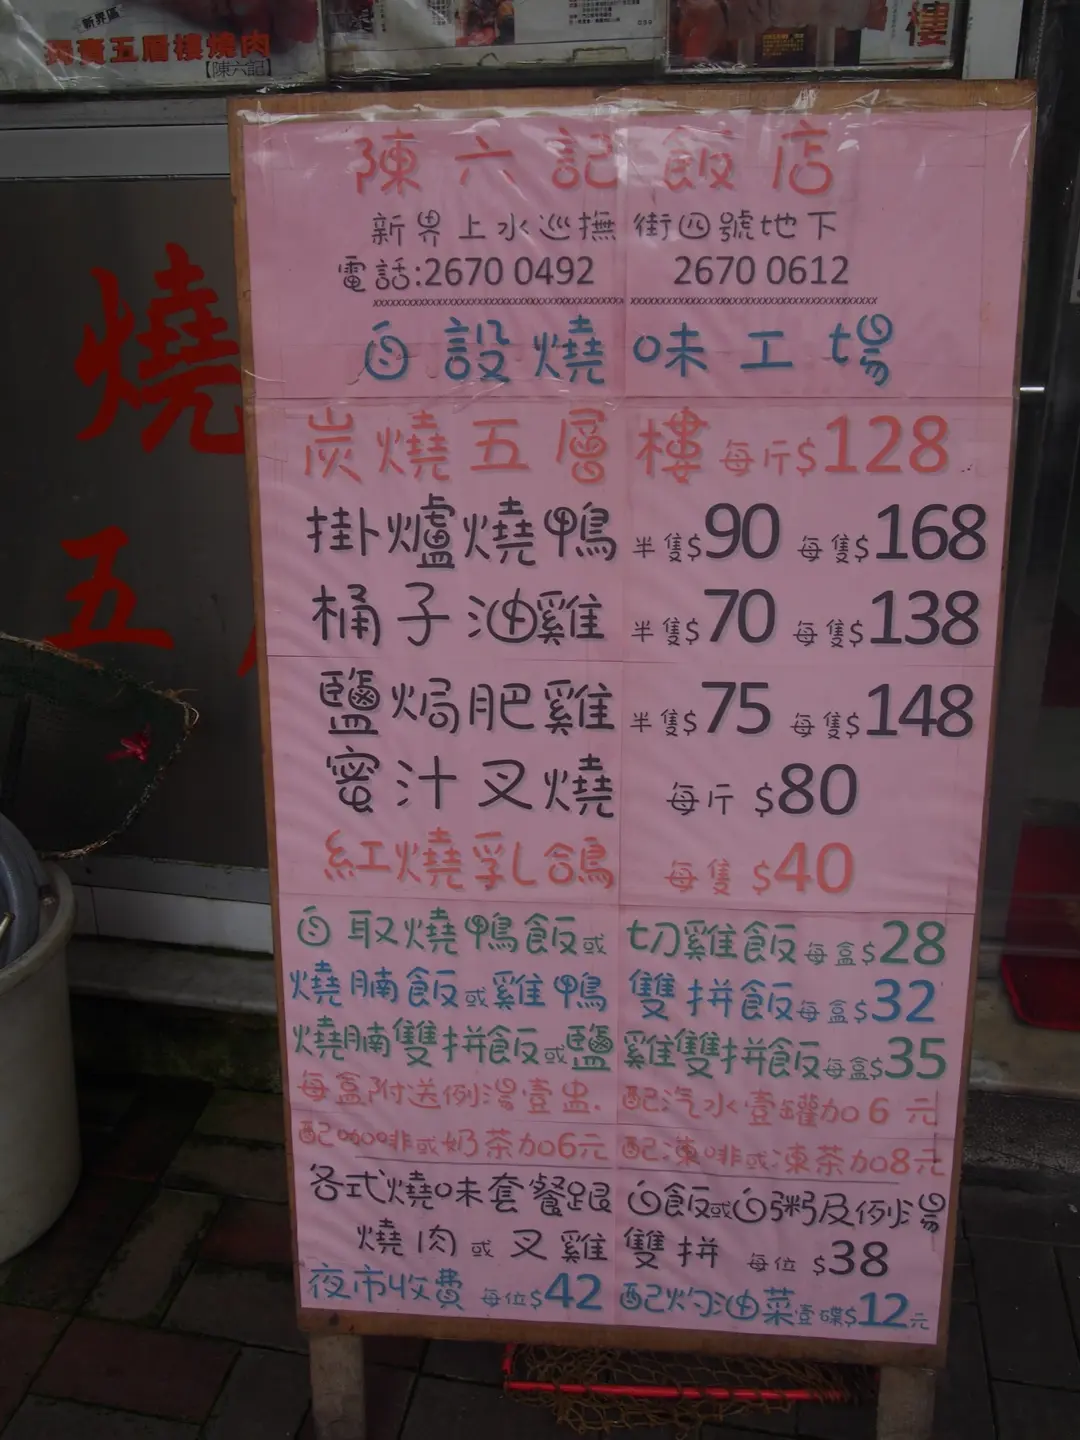 新界區
五層樓燒肉
【陳六記】
樓
燒
五
陳六記飯店
新界上水巡撫街四號地下
電話:2670 0492 2670 0612
自設燒味工場
炭燒五層樓 每斤$128
掛爐燒鴨 半隻$90 每隻$168
桶子油雞 半隻$70 每隻$138
鹽焗肥雞 半隻$75 每隻$148
蜜汁叉燒 每斤 $80
紅燒乳鴿 每隻 $40
自取燒鴨飯或切雞飯每盒$28
燒腩飯或雞鴨雙拼飯每盒$32
燒腩雙拼飯或鹽雞雙拼飯每盒$35
每盒附送例湯壹盅.配汽水壹罐加6元
配咖啡或奶茶加6元 配凍啡或凍茶加8元
各式燒味套餐跟白飯或白粥及例湯
燒肉或叉雞雙拼 每位 $38
夜市收費 每位$42 配灼油菜壹碟$12元